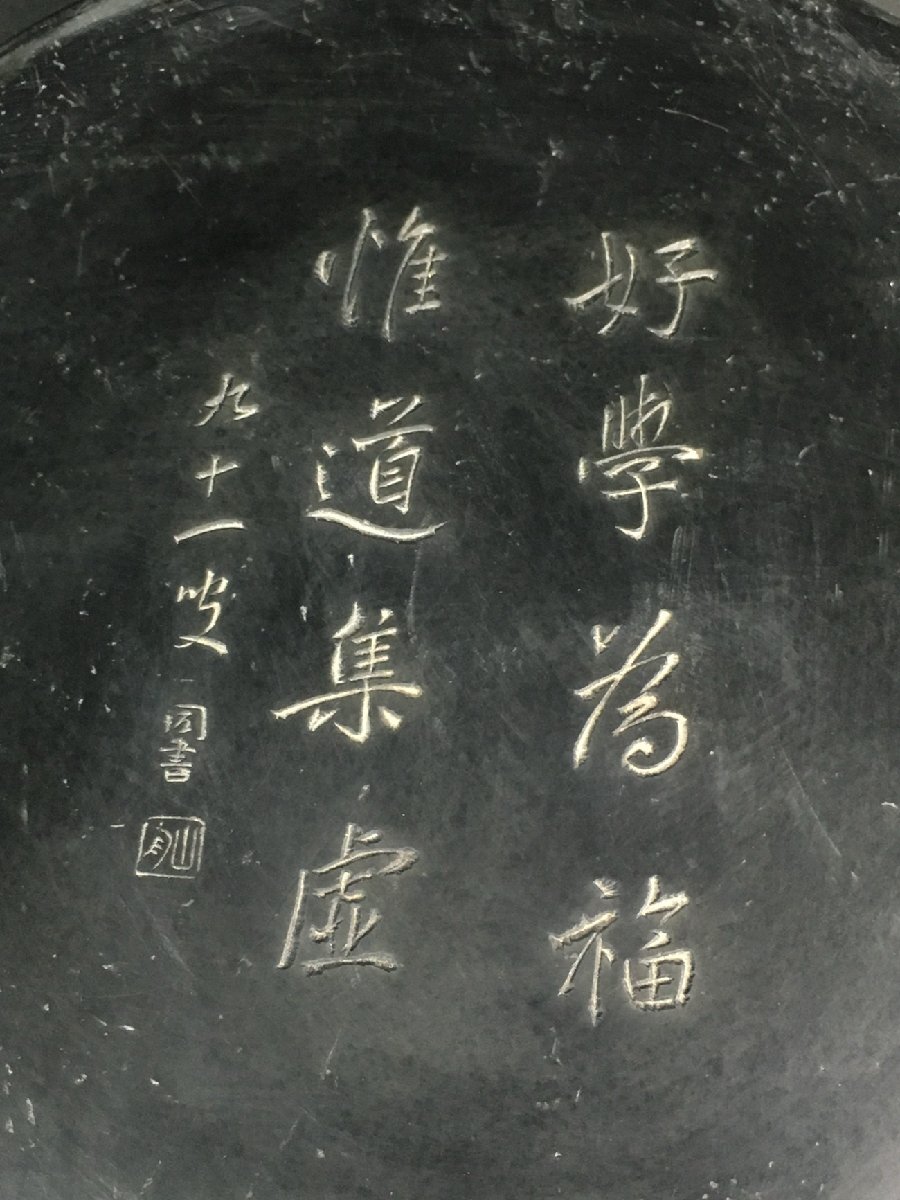 好學為福
惟道集虛
九十一叟同書
山舟